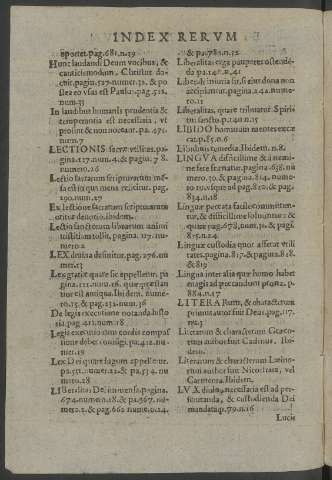 INDEX RERVM
oportet. pag. 681. n. 29
Hunc laudandi Deum vocibus, &
canticis modum, Christus do-
cuit. pagin. 527. numer. 32. & po
stea eo vsus est Paulus. pag. 512.
num. 33
In laudibus humanis prudentia &
temperantia est necessaria, vt
prosint & non noceant. pa. 475.
num. 7
LECTIONIS sacræ vtilitas. pa-
gina. 127. num. 4. & pagin. 78.
numero. 16
Lectio sacrarum scripturarum me
sa est in qua mens reficitur. pag.
290. num. 27
Ex lectione sacrarum scripturarum
utitur demon. ibidem.
Lectio sanctorum librorum animi
utilissima. pagina. 117. nu-
mero. 2
LEX divina definitur. pag. 276. nu
mer. 13
Lex gratiæ quare sic appelletur. pa
gina. 111. num. 16. quæ præstan
tior est antiqua. Ibidem. nume-
ro. 15. & pag. 132. num. 36
De legis executione notanda histo
ria. pag. 421. num. 18
Legis executio cum condis compas
sione debet coniungi. pa. 422. nu-
mer. 19
Lex Dei quare iugum appelletur.
pa. 521. numer. 22. & 534. nu
mero. 28
Liberalitas Dei immensa. pagina.
674. numero. 18. & pa. 567. nu-
mero. 2. & pag. 662. numero. 24.
& pa. 780. n. 52
Liberalitas erga pauperes ostendē-
da pa. 140. n. 41
Libertas iniuria fit, si eius dona non
accipiantur. pagina. 242. nume-
ro. 11
Liberalitas, quare tribuatur Spiri-
tui sancto. pa. 140. n. 1
LIBIDO hominum mentes excæ
cat. p. 85. n. 6
Libidinis remedia. Ibidem. n. 8.
LINGVA difficillime & à nemi-
ne fere frænatur. pagina. 638. nu
mero. 30. & pagina. 844. nume-
ro. 10. vsque ad pag. 820. & pag.
834. n. 18
Linguæ peccata facile committun-
tur, & difficillime soluuntur: &
quæ pag. 678. num. 30. & pag.
234. num. 3
Linguæ custodia quot afferat vtili
tates. pagina. 817. & pagina. 818.
& 819
Lingua inter alia quæ homo habet
magis ad peccandum prona. p.
884. n. 17
LITERArum, & characterum
primus autor fuit Deus. pag. 117.
nu. 3
Literarum & characterum Græco-
rum author fuit Cadmus. Ibi-
dem.
Literarum & characterum Latino-
rum author fuit Nicostrata, vel
Carmenta. Ibidem.
LVX divina, necessaria est ad per-
scrutanda, & custodienda Dei
mandata. p. 79. n. 16
Lucis